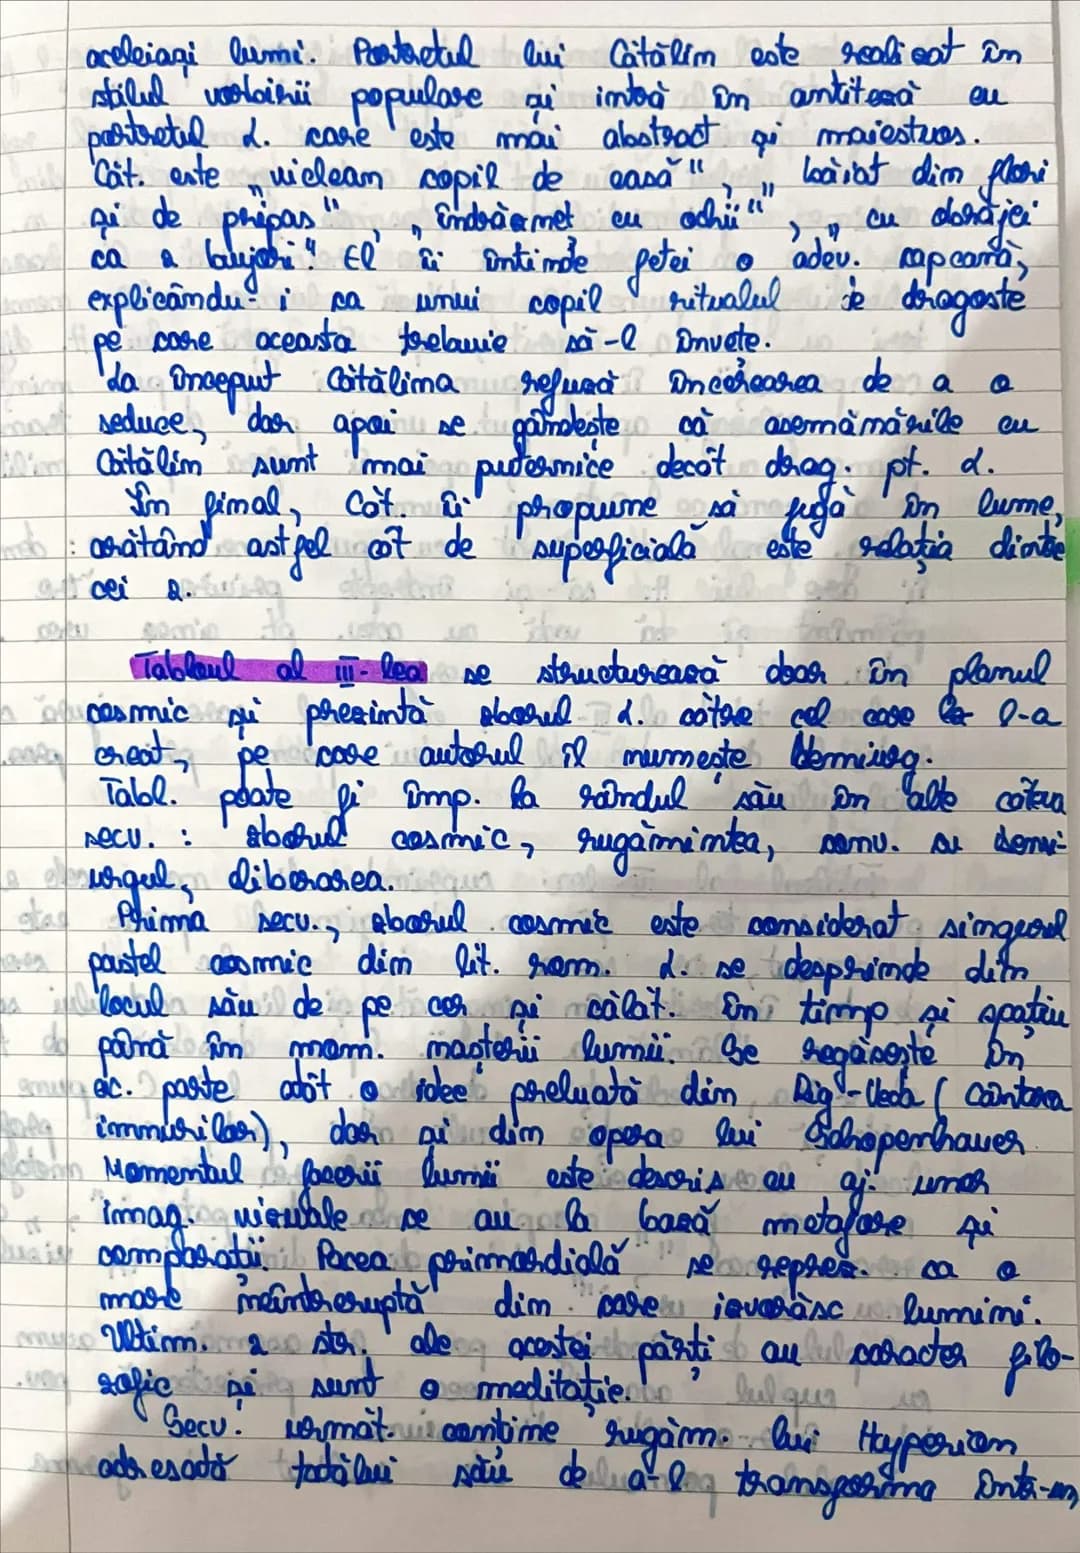 aceleiași lumi. Portretul lui Cătălin este realizat în
stilul vorbirii populare și intră în antiteză cu
portretul L. care este mai abstract și maiestuos.
Căt. este „viclean copil de casă", „băiat din flori
și de pripas", „îndrăzneț cu ochii", „cu obrăjei
ca 2 bujori". El îi întinde fetei o adev. capcană,
explicându-i ca unui copil ritualul de dragoste
pe care aceasta trebuie să-l învețe.
La început Cătălina refuză încercarea de a o
seduce, dar apoi se gândește că asemănările cu
Cătălin sunt mai puternice decât drag. pt. L.
În final, Căt. îi propune să fugă în lume,
arătând astfel cât de superficială este relația dintre
cei 2.
Tabloul al III-lea se structurează doar în planul
cosmic și prezintă zborul L. către cel care l-a
creat, pe care autorul îl numește Demiurg.
Tabl. poate fi împ. la rândul său în alte câteva
secv. : zborul cosmic, rugămintea, conv. cu Demi-
urgul, eliberarea.
Prima secv., zborul cosmic este considerat singurul
pastel cosmic din lit. rom. L. se desprinde din
locul său de pe cer și călăt. în timp și spațiu
până în mom. nașterii lumii. Se regăsește în
ac. parte atât o idee preluată din Rig-Veda (Cântarea
imnurilor), dar și din opera lui Schopenhauer.
Momentul facerii lumii este descris cu aj. unor
imag. vizuale ce au la bază metafore și
comparații. Pacea primordială se reprez. ca o
mare neîntreruptă din care izvorăsc lumini.
Ultim. 2 str. ale acestei părți au caracter filo-
zofic și sunt o meditație.
Secv. următ. conține rugăm. lui Hyperion
adresată tatălui său de a-l transforma într-un